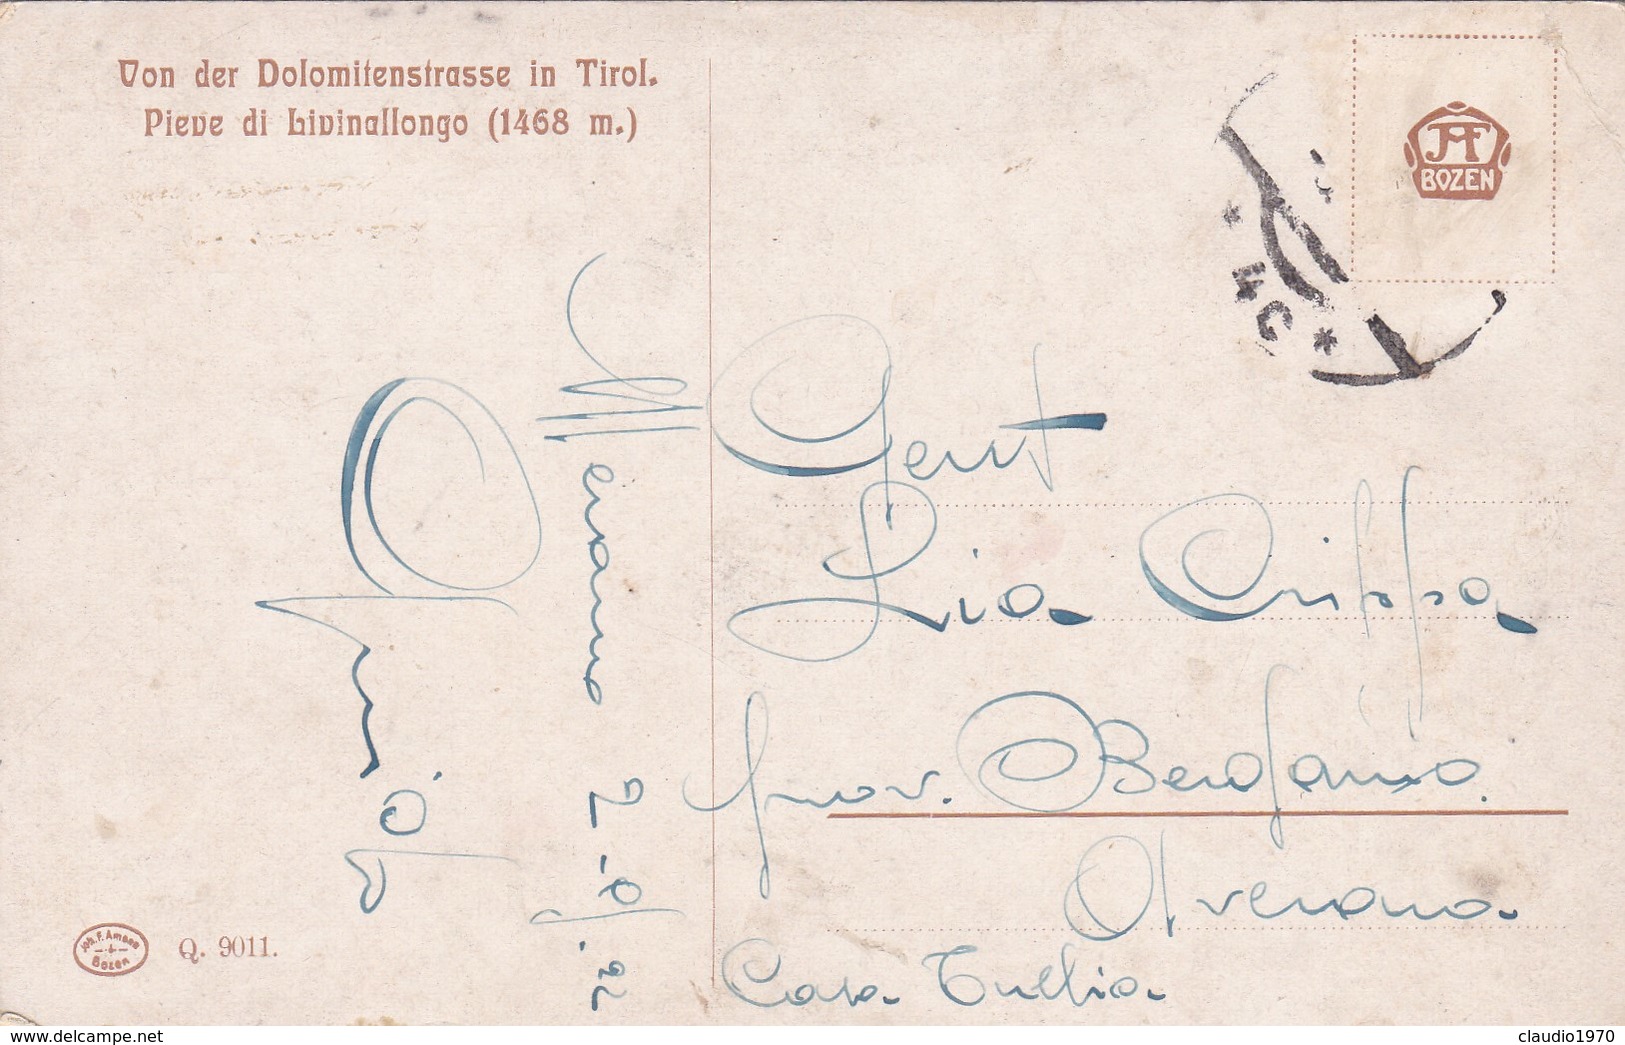 Von der Dolomitenstrasse in Tirol.
Pieve di Livinallongo (1468 m.)
JAF
BOZEN
Gent
Lia Crippa
prov. Bergamo
Averara
Casa Tullia
Merano 2.9.22
Joh. F. Amonn
Bozen
Q. 9011.
www.delcampe.net
claudio1970